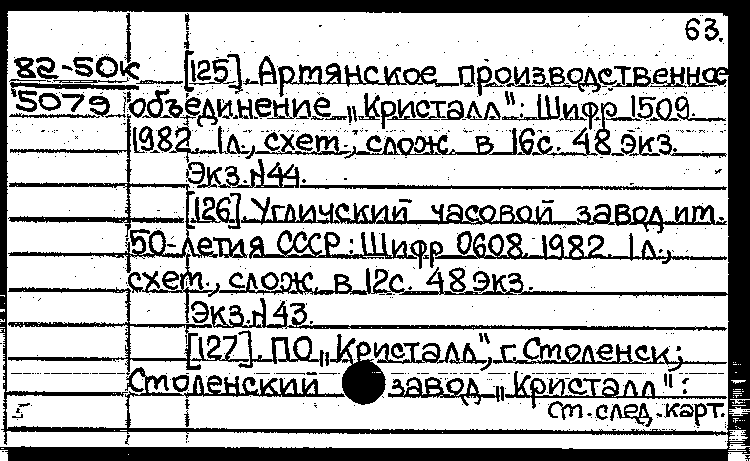 63.
82-50к [125]. Артянское производственное
5079 объединение „Кристалл": Шифр 1509.
1982. 1л., схет., слож. в 16с. 48 экз.
Экз.№44.
[126]. Угличский часовой завод ит.
50-летия СССР: Шифр 0608. 1982. 1л.,
схет., слож. в 12с. 48 экз.
Экз.№43.
[127]. ПО „Кристалл", г. Столенск;
Столенский завод „Кристалл":
ст. след. карт.